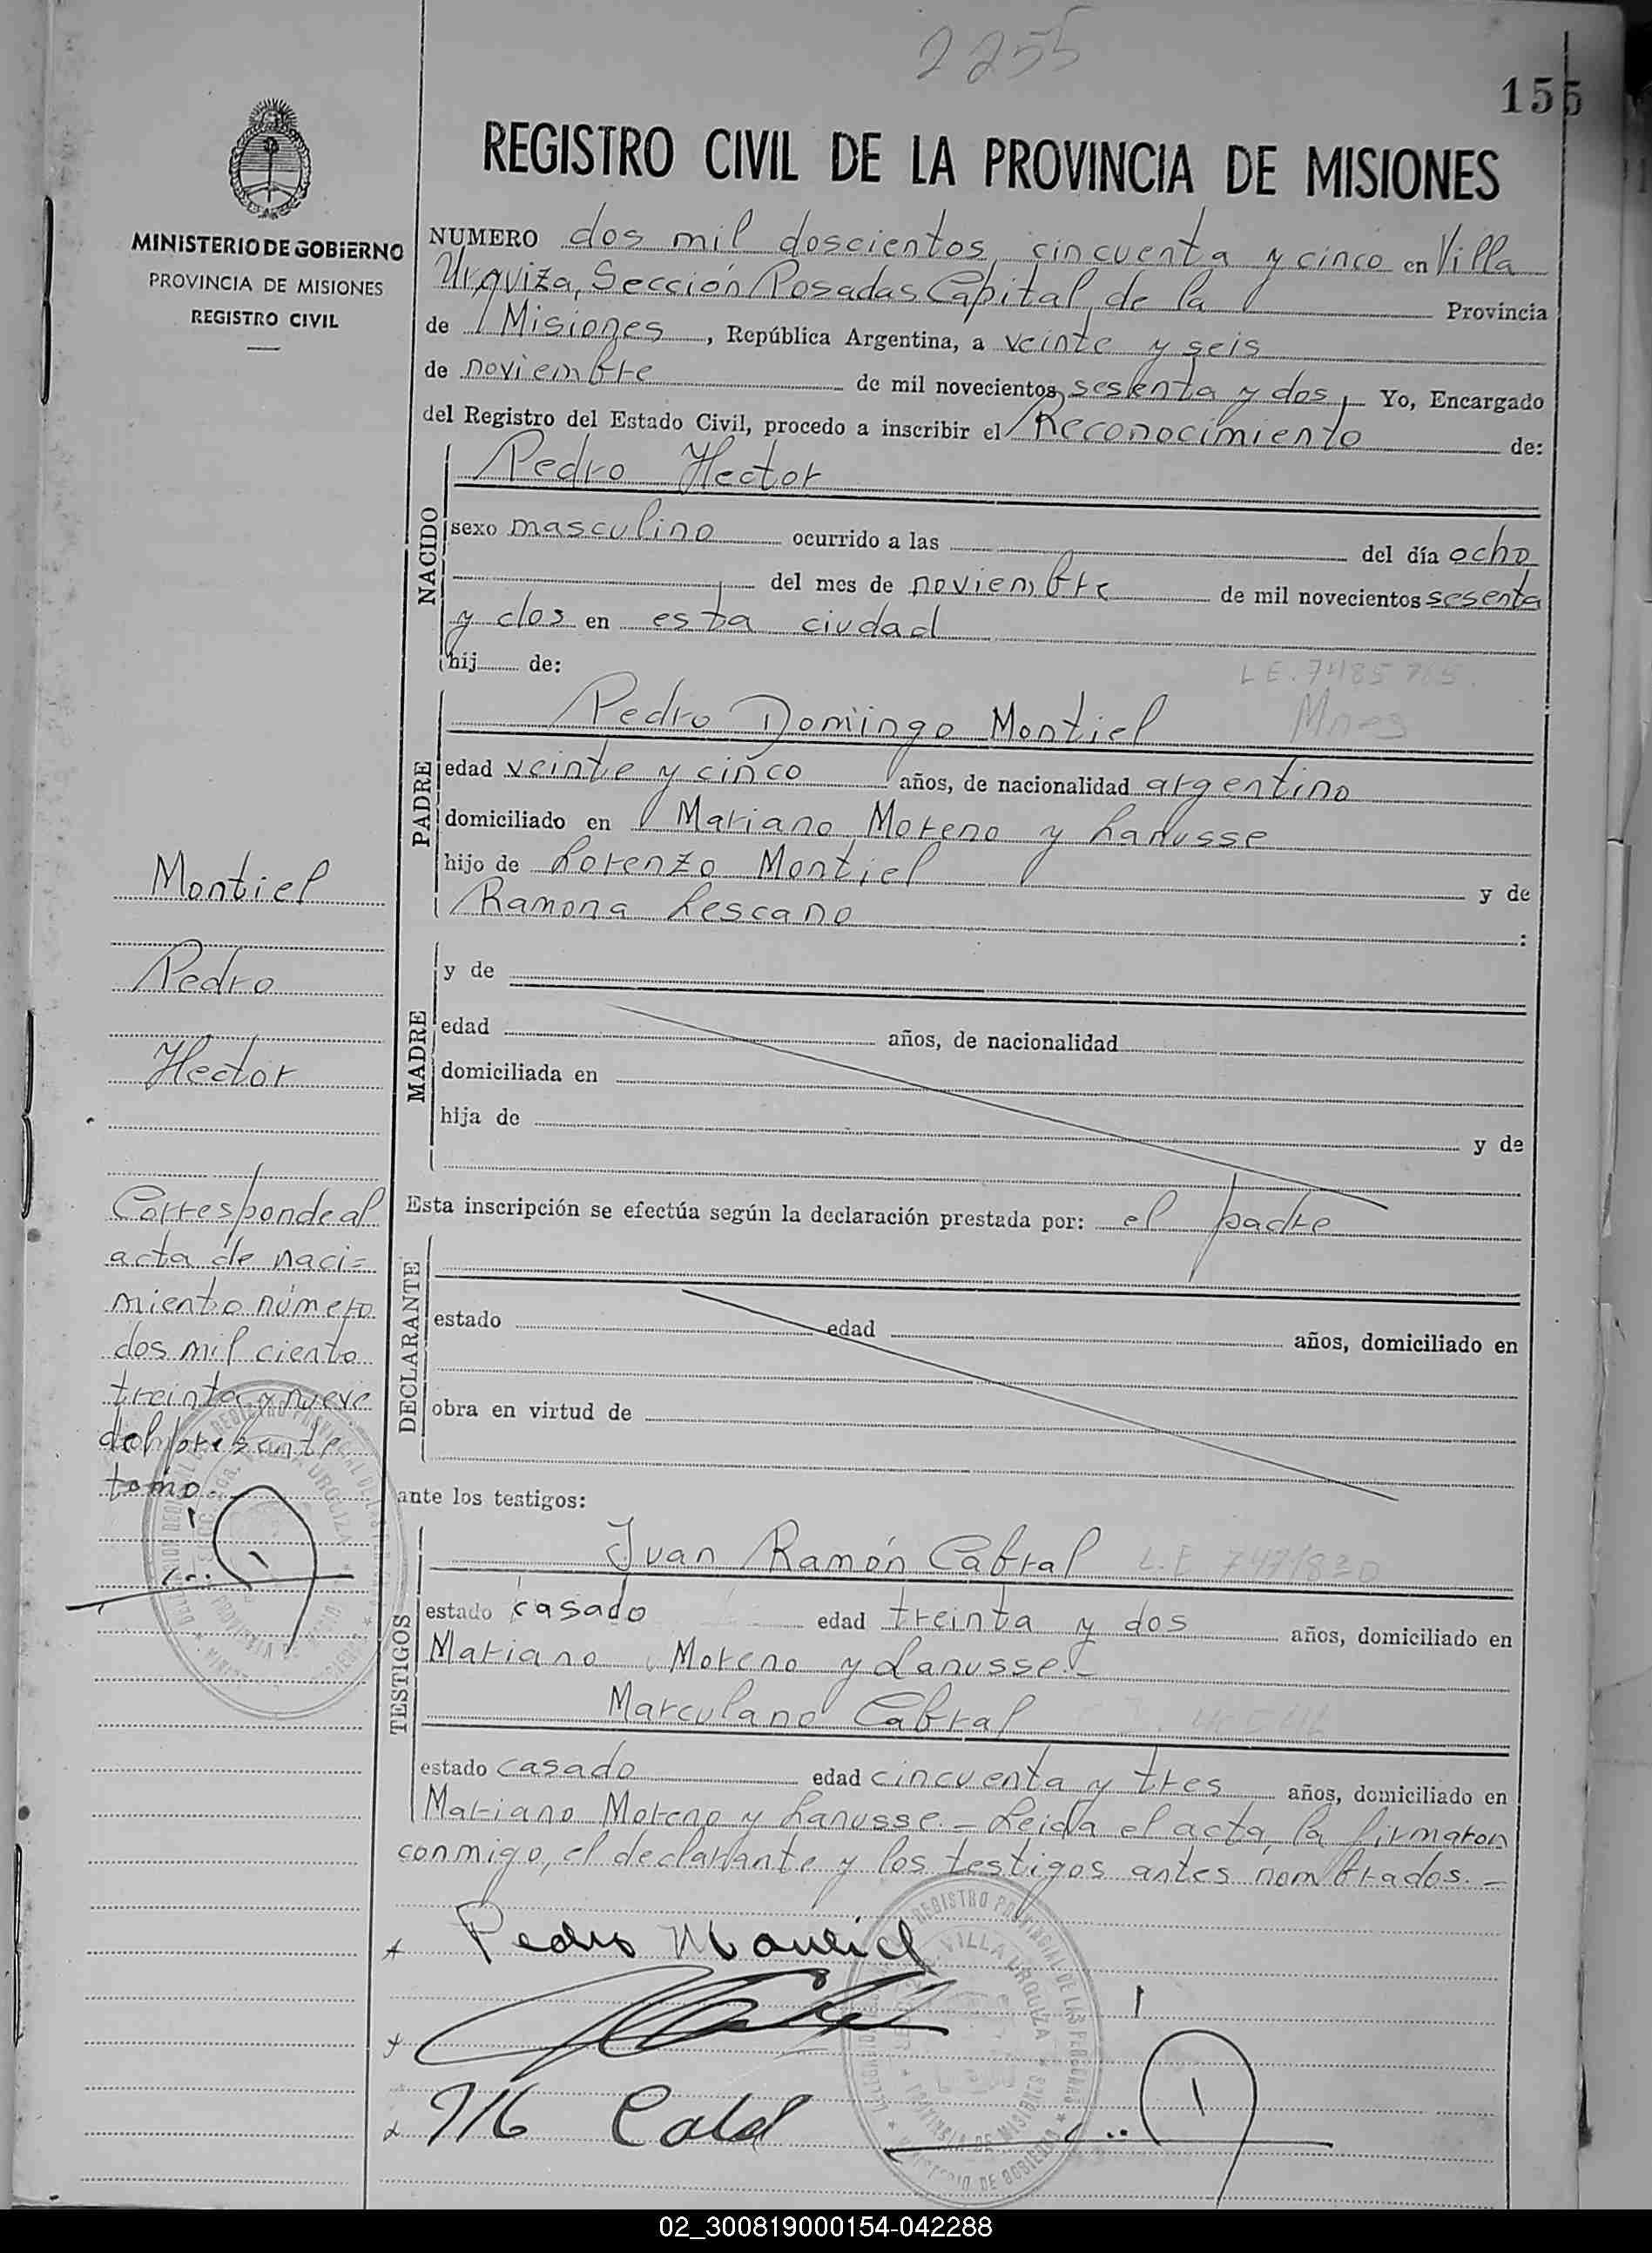 2255
155
REGISTRO CIVIL DE LA PROVINCIA DE MISIONES
MINISTERIO DE GOBIERNO
PROVINCIA DE MISIONES
REGISTRO CIVIL
NUMERO dos mil doscientos cincuenta y cinco en Villa
Urquiza, Sección Posadas Capital de la Provincia
de Misiones, República Argentina, a veinte y seis
de noviembre de mil novecientos sesenta y dos, Yo, Encargado
del Registro del Estado Civil, procedo a inscribir el Reconocimiento de:
NACIDO
Pedro Hector
sexo masculino ocurrido a las del día ocho
del mes de noviembre de mil novecientos sesenta
y dos en esta ciudad
hij de:
L E. 7485765
Mnes
PADRE
Pedro Domingo Montiel
edad veinte y cinco años, de nacionalidad argentino
domiciliado en Mariano Moreno y Lanusse
hijo de Lorenzo Montiel y de
Ramona Lescano :
MADRE
y de
edad años, de nacionalidad
domiciliada en
hija de y de
Esta inscripción se efectúa según la declaración prestada por: el padre
DECLARANTE
estado edad años, domiciliado en
obra en virtud de
ante los testigos:
TESTIGOS
Juan Ramón Cabral L.E 7471830
estado casado edad treinta y dos años, domiciliado en
Mariano Moreno y Lanusse.-
Marculano Cabral
estado casado edad cincuenta y tres años, domiciliado en
Mariano Moreno y Lanusse.- Leida el acta, la firmaron
conmigo, el declarante y los testigos antes nombrados.-
Montiel
Pedro
Hector
Corresponde al
acta de naci-
miento número
dos mil ciento
treinta y nueve
del presente
tomo.-
Pedro Montiel
REGISTRO PROVINCIAL DE LAS PERSONAS
VILLA URQUIZA
PROVINCIA DE MISIONES
MINISTERIO DE GOBIERNO
02_300819000154-042288